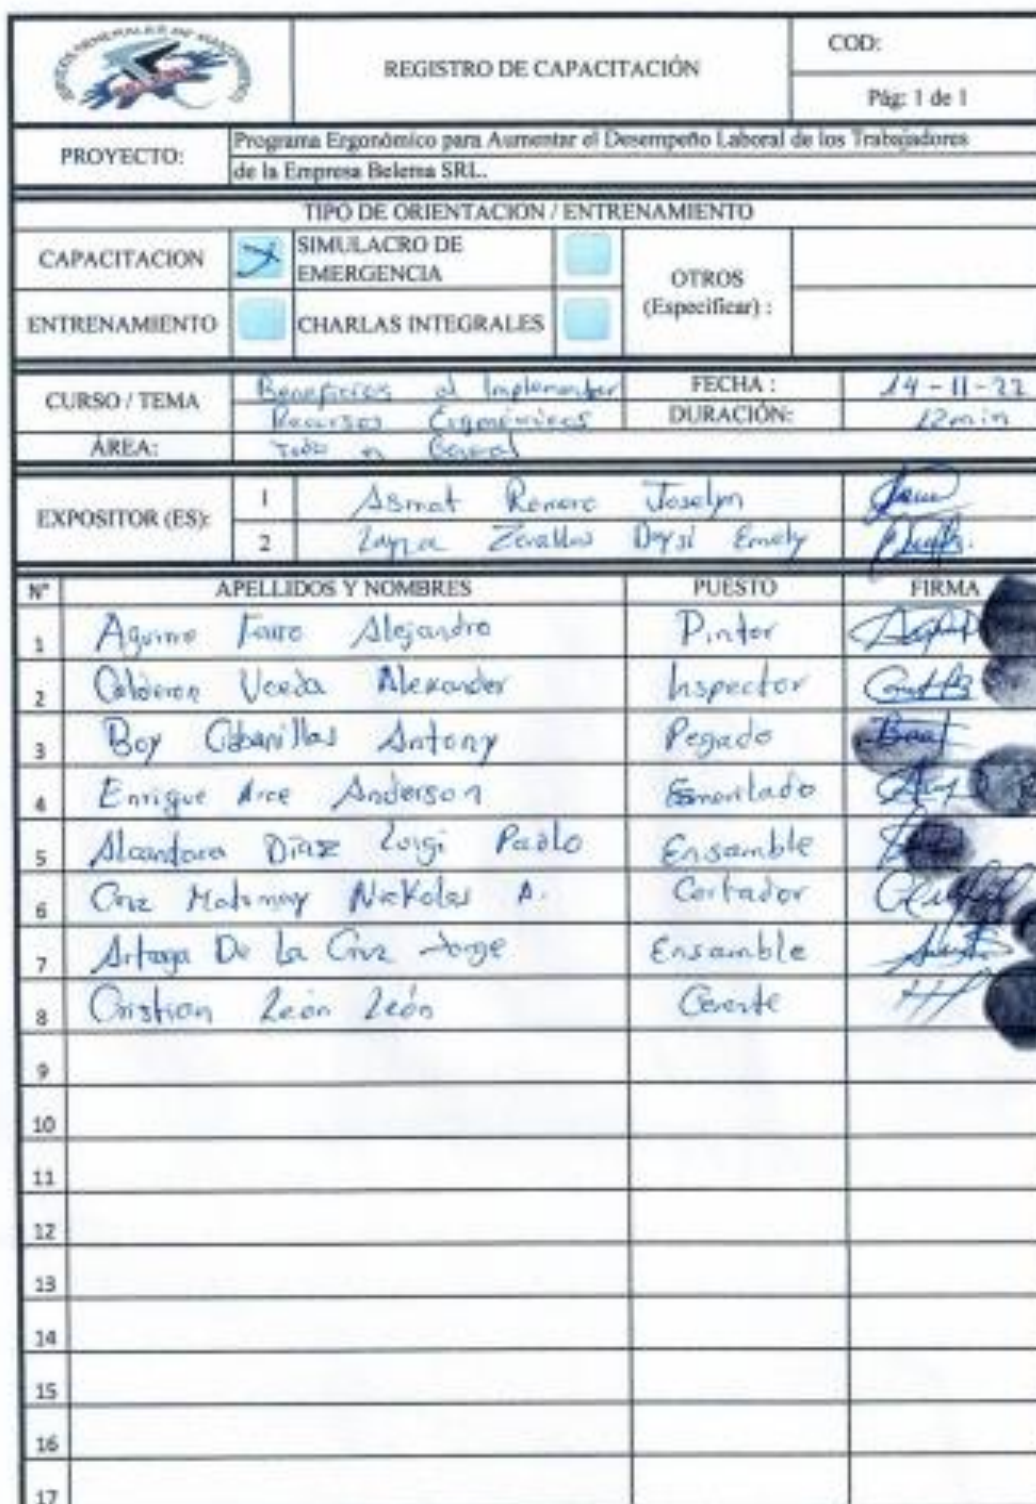 SERVICIOS GENERALES DE
REGISTRO DE CAPACITACIÓN
COD:
Pág: 1 de 1
PROYECTO:
Programa Ergonómico para Aumentar el Desempeño Laboral de los Trabajadores
de la Empresa Belema SRL.
TIPO DE ORIENTACION / ENTRENAMIENTO
CAPACITACION
SIMULACRO DE
EMERGENCIA
OTROS
(Especificar) :
ENTRENAMIENTO
CHARLAS INTEGRALES
CURSO / TEMA
Beneficios al Implementar
Recursos Ergonómicos
FECHA :
14 - 11 - 22
DURACIÓN:
12 min
ÁREA:
Todo en General
EXPOSITOR (ES):
1 Asmat Romero Joselyn
2 Zevallos Daysi Emely
N° APELLIDOS Y NOMBRES PUESTO FIRMA
1 Aquino Alejandro Pintor
2 Calderon Alexander Inspector
3 Boy Cabanillas Antony Pegado
4 Enrique Arce Anderson
5 Alcantara Diaz Luigi Paolo Ensamble
6 Cruz Nickolas A. Cortador
7 Artiaga De La Cruz Jorge Ensamble
8 Cristian León León Gerente
9
10
11
12
13
14
15
16
17